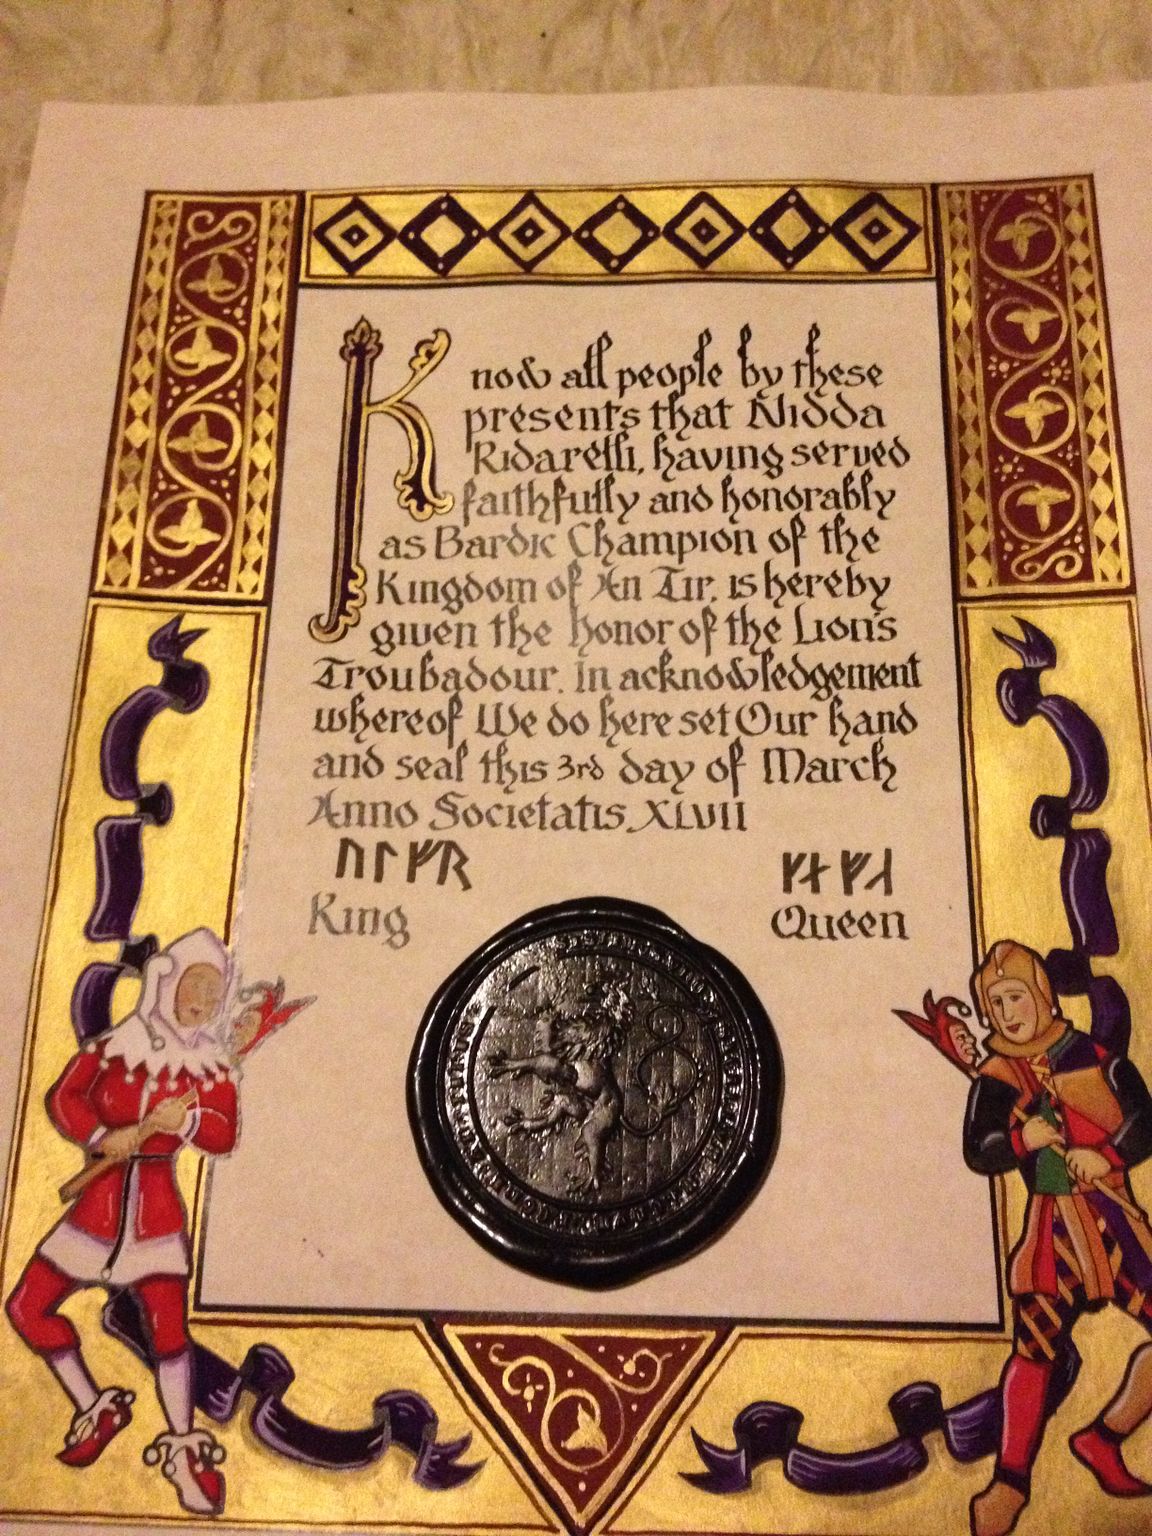 Know all people by these
presents that Nidda
Ridarelli, having served
faithfully and honorably
as Bardic Champion of the
Kingdom of An Tir, is hereby
given the honor of the Lion's
Troubadour. In acknowledgement
whereof We do here set Our hand
and seal this 3rd day of March
Anno Societatis XLVII
ᚢᛚᚠᚱ
King
Queen